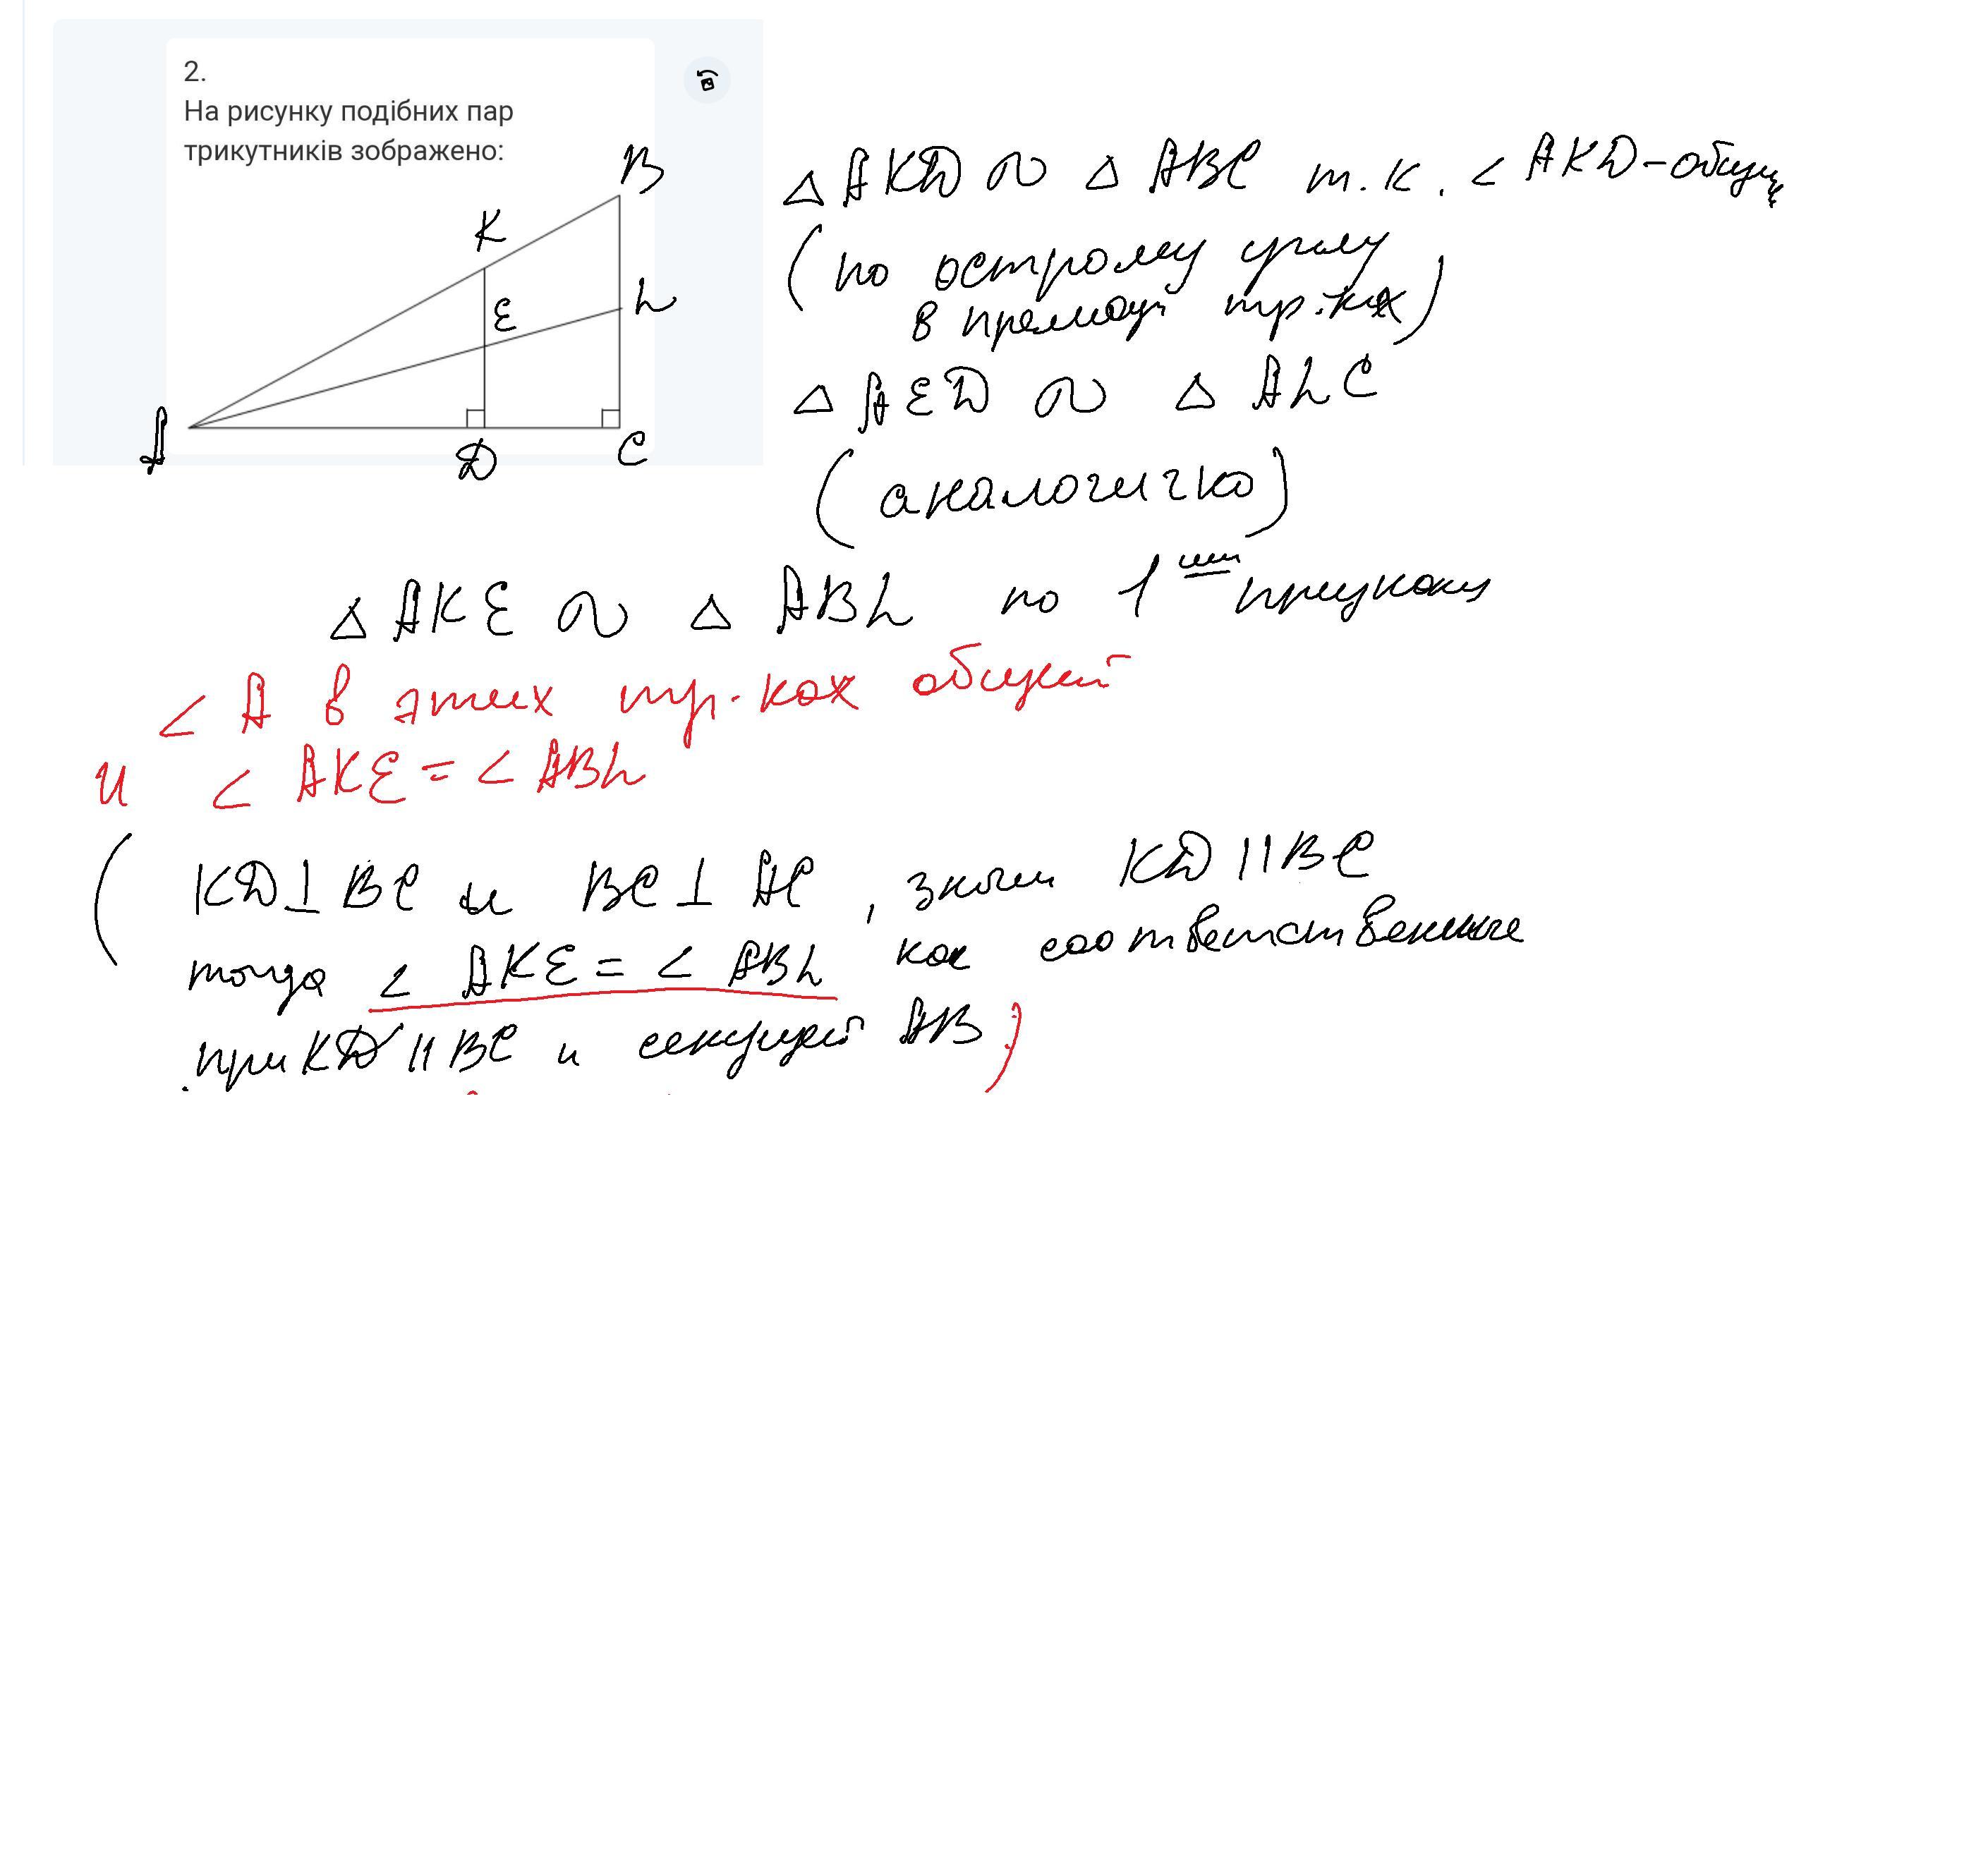 2.
На рисунку подібних пар
трикутників зображено:
B
K
L
E
A
D
C
△ AKD ∾ △ ABC т.к. < AKD - общий
(по острому углу
в прямоуг тр.-ках)
△ AED ∾ △ ALC
(аналогично)
△ AKE ∾ △ ABL по 1 признаку
< A в этих тр-ках общий
и < AKE = < ABL
( KD ⊥ BC и BC ⊥ AC, значит KD || BC
тогда < AKE = < ABL как соответственные
при KD || BC и секущей AB )